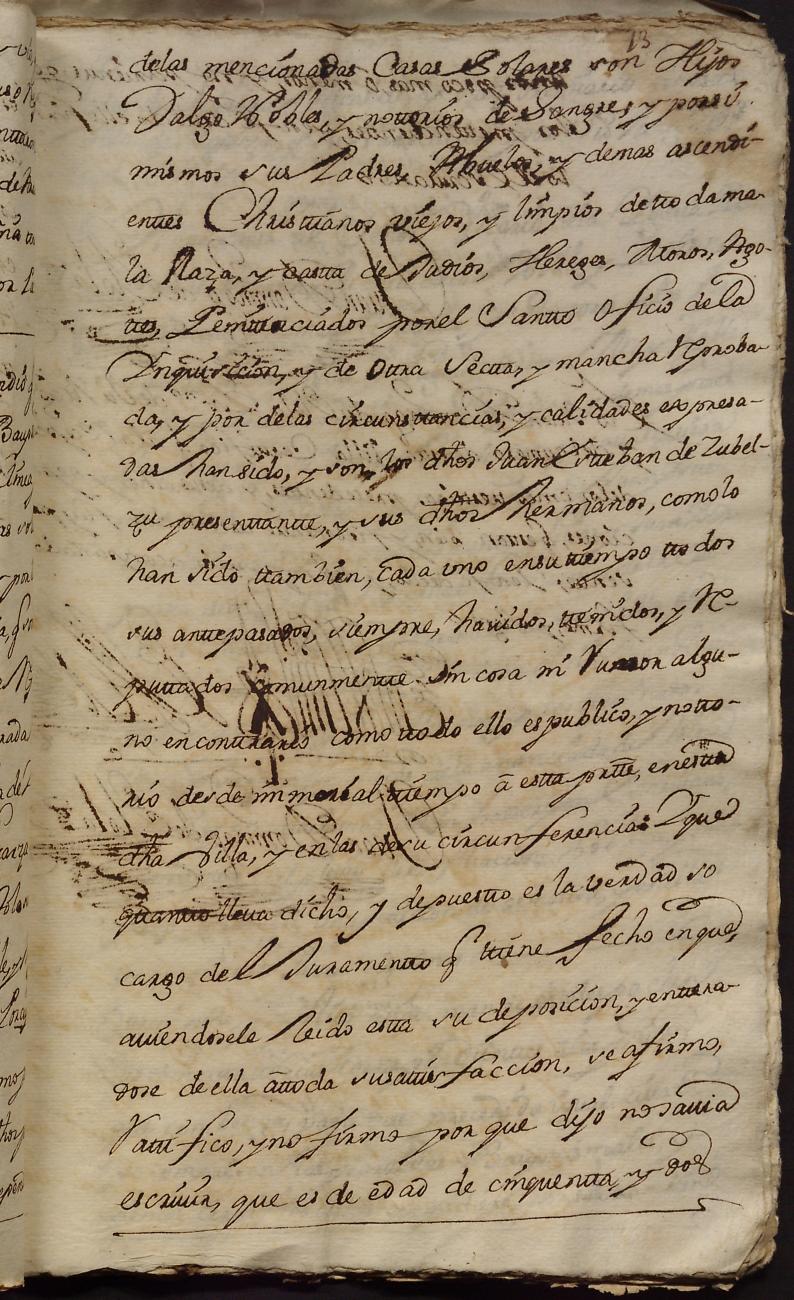 13
delas mencionadas Casas Solares son Hijos
Dalgo Nobles, y nottorios de Sangre, y por sí
mismos sus Padres, Abuelos, y demas ascendi-
entes Christtianos viejos, y limpios de tto da ma-
la Raza, y castta de Judios, Hereges, Moros, Ago-
ttes, Penittenciados por el Santto Oficio de la
Inquisicion, y de Ottra Sectta, y mancha Reproba-
da, y por delas circunsttancias, y calidades expresa-
das han sido, y son, los dhos Juan Estteban de Zubel-
zu presenttantte, y sus dhos Hermanos, como lo
han sido ttambien, cada uno en su ttiempo ttodos
sus anttepasados, siempre, havidos, ttenidos, y Re-
puttados comunmentte sin cosa ni Rumor algu-
no en conttrario como ttodo ello es publico, y notto-
rio desde inmemorial ttiempo â estta prtte, en estta
dha Villa, y en las de su circunferencia: Y que
quantto lleva dicho, y depuestto es la verdad so
cargo del Juramentto q̃ ttiene fecho en que,
aviendosele leido estta su deposicion, y entera-
dose de ella âttoda susattisfaccion, se afirmo,
Rattifico, y no firmo por que dijo no savia
escrivir, que es de edad de cinquentta, y dos